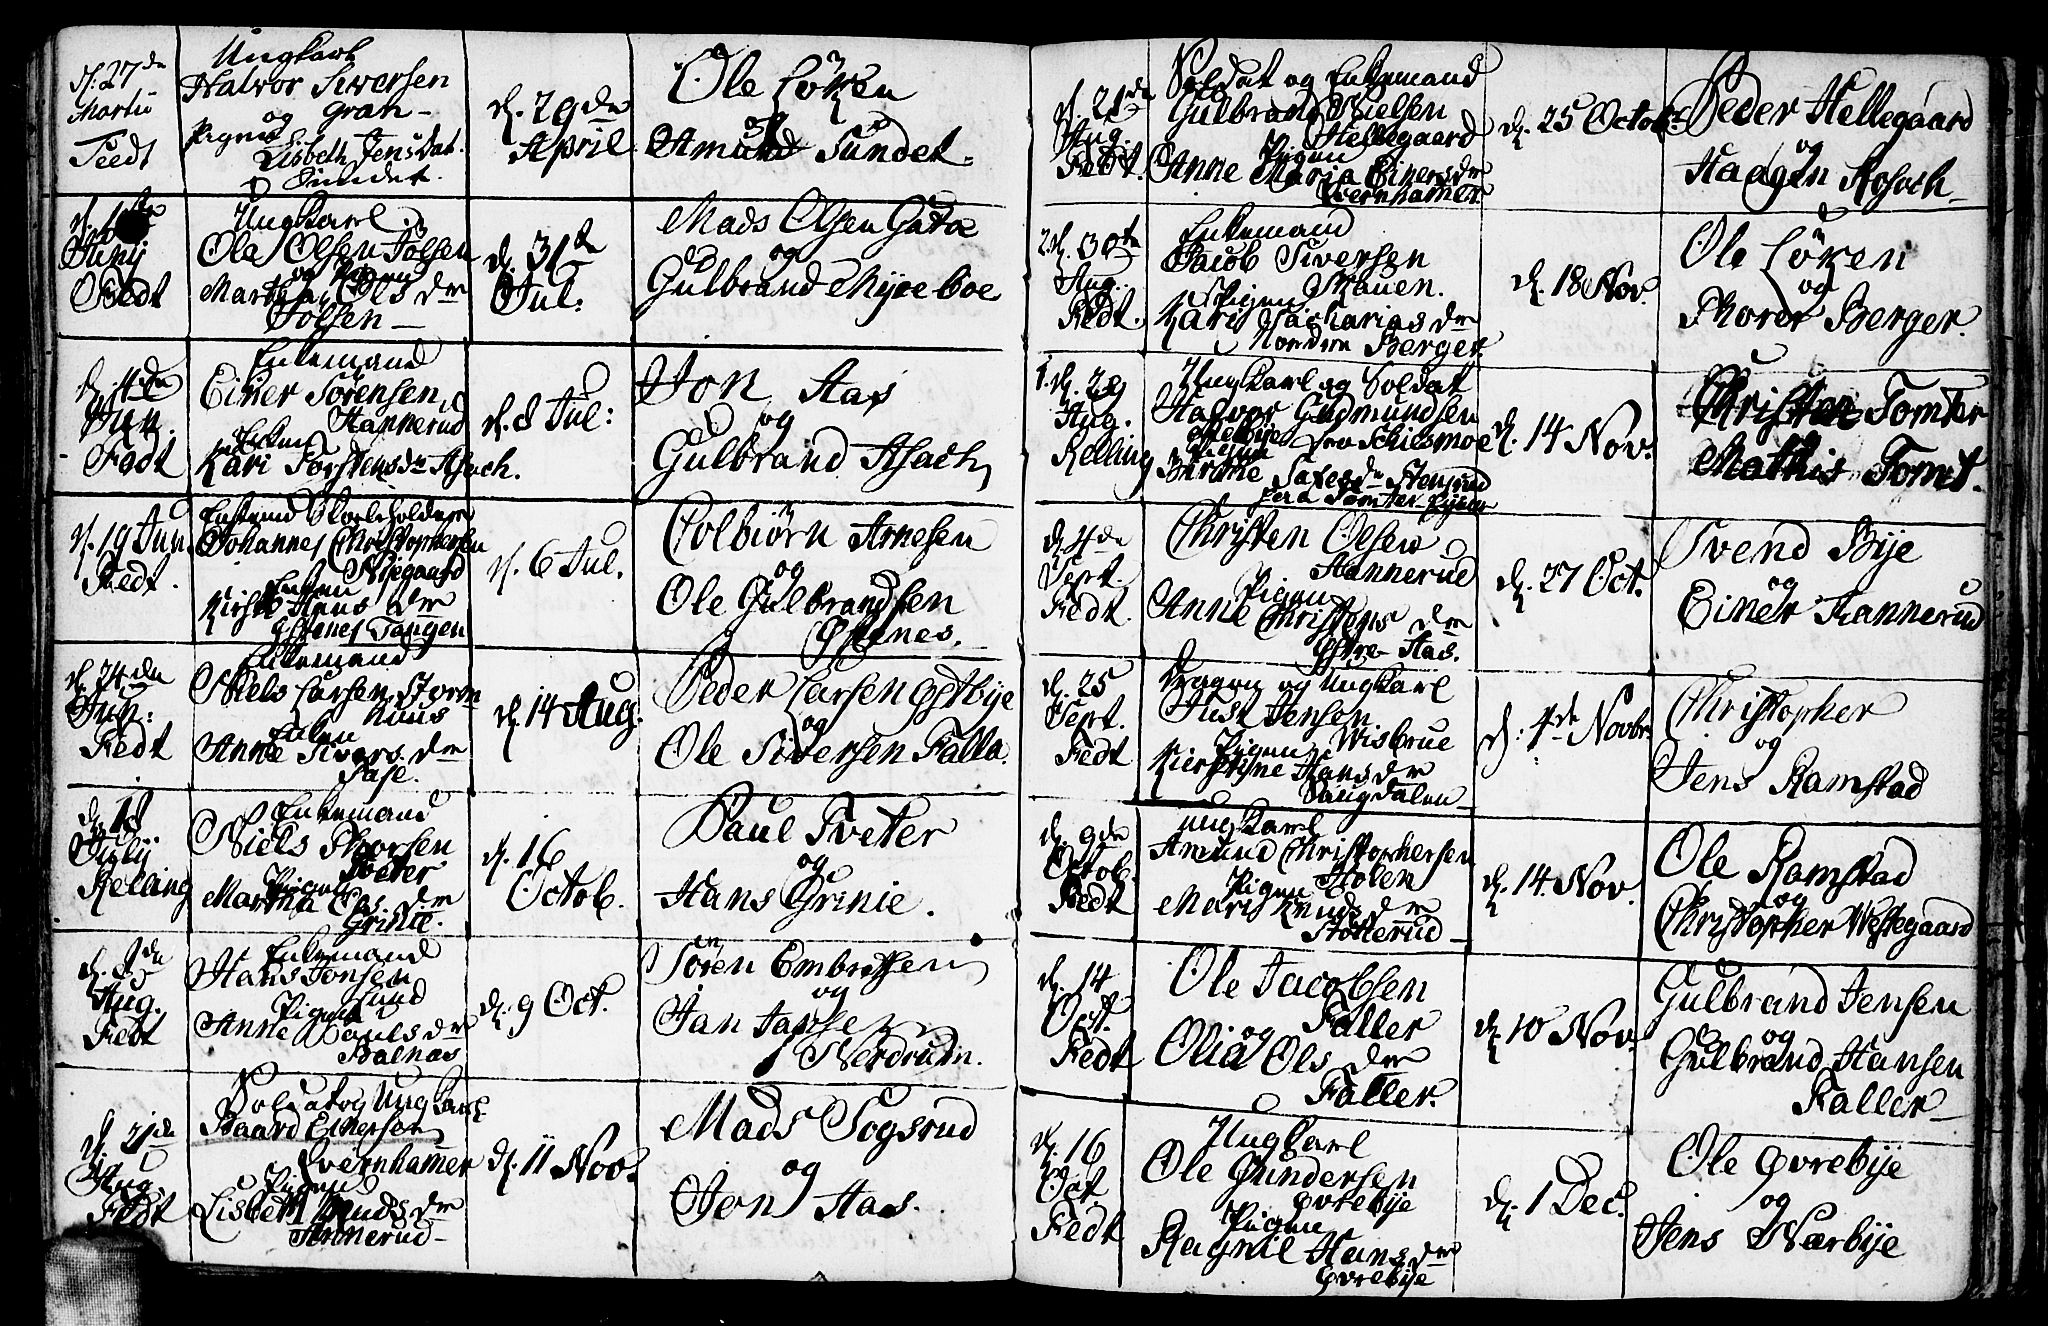 d. 27de
Martii
Feedt
Ungkarl
Halvor Siversen
og Gran
Pigen
Lisbeth Jensdat.
Sundet.
d. 29de
April
Ole Löken
og
Amund Sundet.
Junij
Feedt
Ungkarl
Ole Olsen Tolsen
og Pigen
Martha Ols dr
Tolsen
d. 31de
Jul:
Mads Olsen Gata
og
Gulbrand Myreboe
d. 4de
Jun.
Fædt
Enkemand
Einer Sörensen
Hannerud
Enken
Kari Torstens dr Asach.
d. 8 Jul:
Jon Aas
og
Gulbrand Asach
d. 19 Jun.
Fædt.
Enkemd Skoeleholdere
Johannes Christophersen
Nijegaard
Enken
Kirsti Hans dr
Østenes Tangen
d. 6 Jul.
Colbiörn Arnesen
og
Ole Gulbrandsen
Østenes.
d. 24de
Jun:
Fedt
Enkemand
Niels Larsen Storm
huus
Enken
Anne Sivers dr
Fase.
d. 14 Aug.
Peder Larsen Østbije
og
Ole Siversen Falla.
d. 18
Julij
Relling
Enkemand
Niels Thorsen
Tveter
Pigen
Martha Ols dr
Grinie.
d. 16
Octob.
Paul Tveter
og
Hans Grinie.
d. 1de
Aug.
Fedt
Enkemand
Hans Jonsen
Lund
Pigen
Anne Pauls dr
Balnas
d. 9 Oct.
Sören Embretsen
og
Jan Jansen
Nerdrum.
d. 21de
Aug.
Fedt
Soldat og Ungkarl
Baard Einersen
Qvernhamer
Pigen
Lisbeth Knuds dr
Annerud
d. 11 Nov.
Mads Sogsrud
og
Jon Aas.
d. 21de
Aug.
Fedt.
Soldat og Enkemand
Gulbrand Nielsen
Hellegaard
Pigen
Anne Maria Einers dr
Qvernhamer
d. 25 Octobr.
Peder Hellegaard
og
Haagen Asach
2. d. 30te
Aug.
Fedt.
Enkemand
Jacob Siversen
Mauen.
Pigen
Kari Sacharias dr
Nordre Berger
d. 18 Nov.
Ole Löken
og
Thorer Berger.
1. d. 29
Aug.
Relling
Ungkarl og Soldat
Halvor Gudmundsen
Melbije fra Schiesmoe
Pigen
Birthe Saxes dr Stensrud
fra Tomter Eyer
d. 14 Nov.
Christen Tomter
Mathis Tomt.
d. 4de
Sept.
Fedt.
Christen Olsen
Hannerud
Pigen
Anne Christens dr
Østre Aas.
d. 27 Oct.
Svend Bije
og
Einer Hannerud
d. 25
Sept.
Fedt
Dragon og Ungkarl
Just Jensen
Wisbrue
Pigen
Kierstine Hans dr
Daugdalen
d: 4de Novbr.
Christopher
og
Jens Ramstad
d. 9de
Octob.
Fedt
Ungkarl
Amund Christophersen
Holen
Pigen
Mari Knuds dr
Stotterud
d. 14. Nov.
Ole Ramstad
og
Christopher Westegaard
d. 14
Oct.
Fedt
Ole Jacobsen
Faller
og
Olia Ols dr
Faller.
d. 10 Nov.
Gulbrand Jensen
og
Gulbrand Hansen
Faller
d. 16
Oct.
Fedt
Ungkarl
Ole Gundersen
Øvrebije
Pigen
Ragnil Hans dr
Øvrebije
d. 1 Dec.
Ole Øvrebije
og
Jens Nærbije